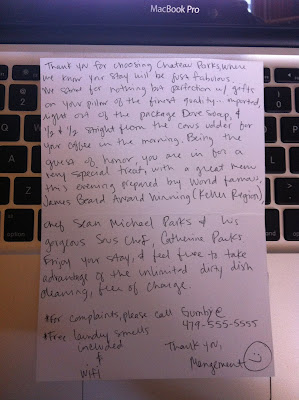 MacBook Pro
Thank you for choosing Chateau Parks, where
we know your stay will be just fabulous.
We strive for nothing but perfection w/ gifts
on your pillow of the finest quality... imported,
right out of the package Dove Soap, &
1/2 & 1/2 straight from the cows udder for
your coffee in the morning. Being the
guest of honor, you are in for a
very special treat, with a great menu
this evening prepared by World famous,
James Beard Award Winning (Keller Region)
Chef Sean Michael Parks & his
gorgeous Sous Chef, Catherine Parks
Enjoy your stay, & feel free to take
advantage of the unlimited dirty dish
cleaning, free of charge.
*For complaints, please call Gumby @
479-555-5555
*Free laundry smells
included
&
Wifi
Thank you,
Mangement